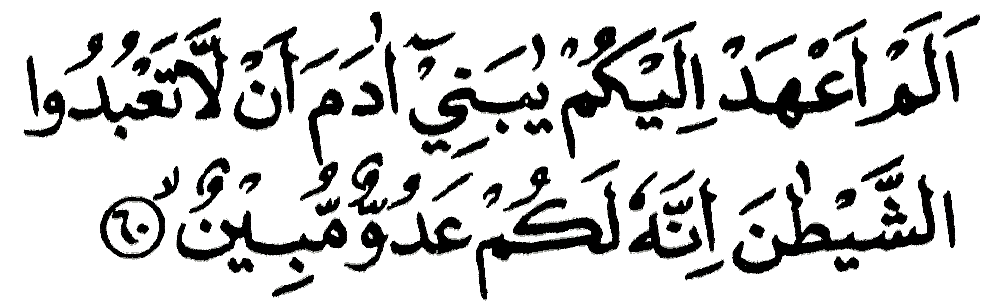 اَلَمْ اَعْهَدْ اِلَيْكُمْ يٰبَنِيْٓ اٰدَمَ اَنْ لَّا تَعْبُدُوا
الشَّيْطٰنَۚ اِنَّهٗ لَكُمْ عَدُوٌّ مُّبِيْنٌۙ ۝٦٠